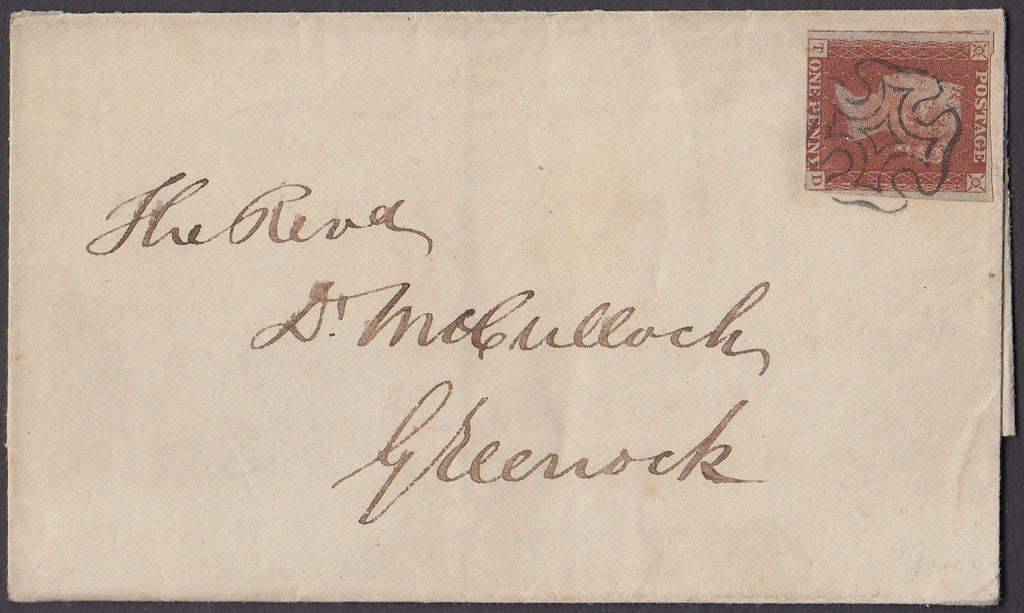 The Revd
Dr. McCulloch
Greenock
POSTAGE
T ONE PENNY D